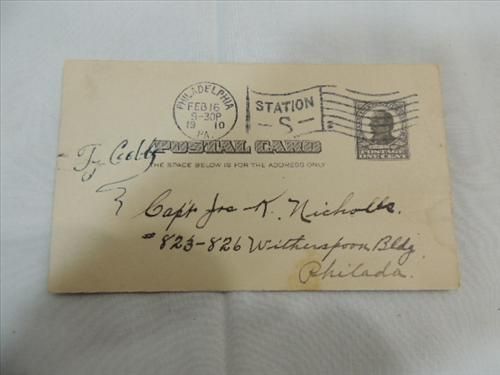 PHILADELPHIA
FEB 16
9-30P
19 10
PA.
STATION
S
POSTAL CARD
THE SPACE BELOW IS FOR THE ADDRESS ONLY
POSTAGE
ONE CENT
Ty Cobb
Capt Jos K. Nicholls.
#823-826 Witherspoon Bldg
Philada.